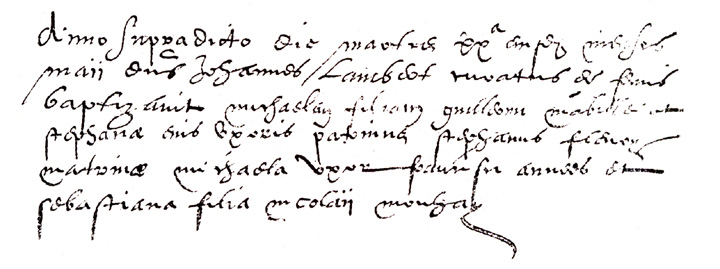 Anno supradicto die martis xxª ensez menses
maii dns Johannes Lambert curatus de
baptizavit michaelam filiam guillermi mabille et
stephanæ eius uxoris patrinus stephanus fleury
matrinæ michaela uxor et
sebastiana filia nicolaii